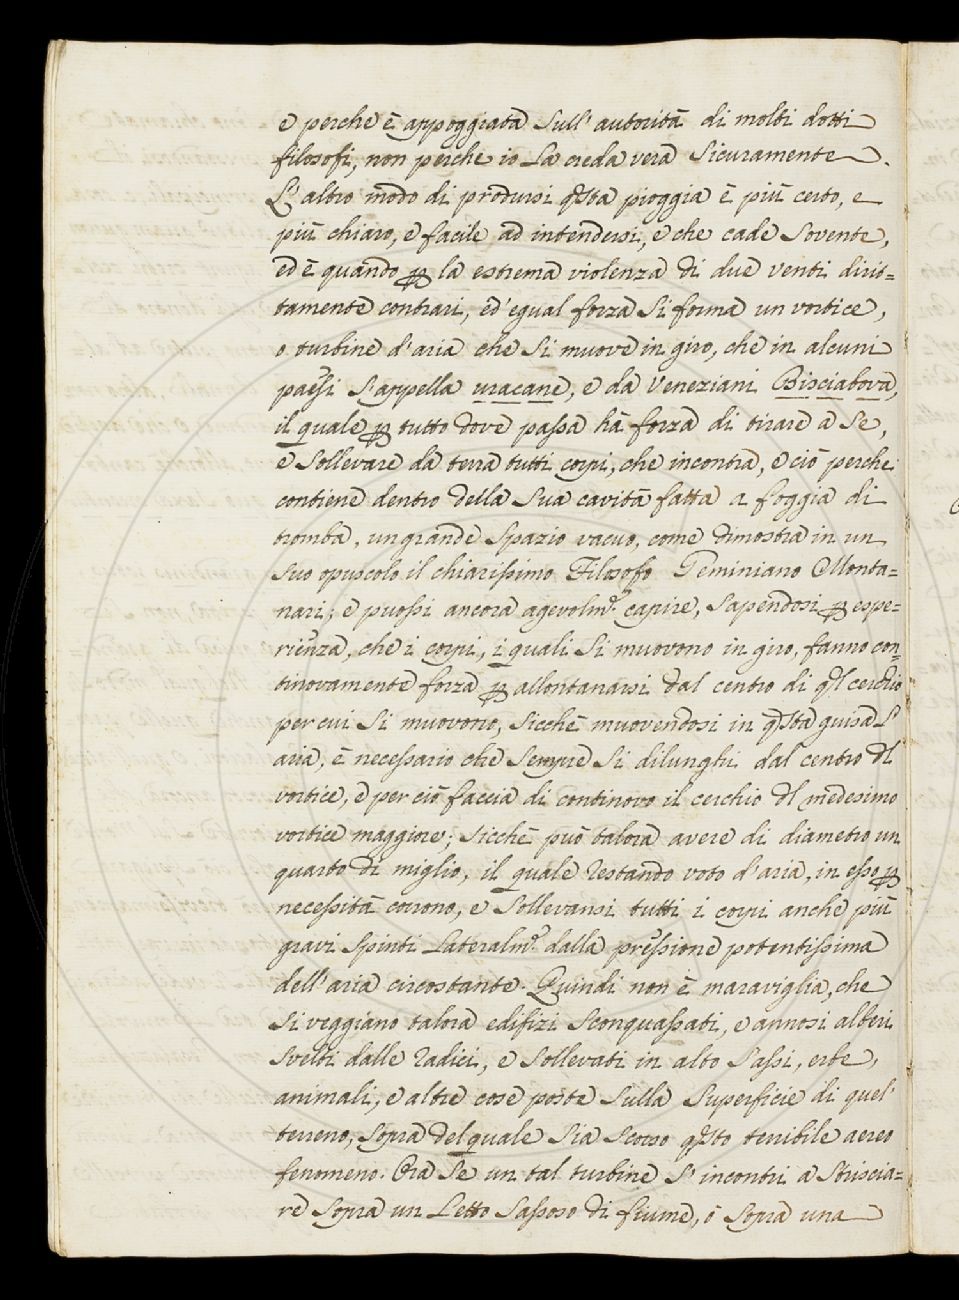 e perche è appoggiata sull' autorità di molti dotti
filosofi, non perche io la creda vera sicuramente.
L'altro modo di prodursi qsta pioggia è più certo, e
più chiaro, e facile ad intendersi, e che cade sovente,
ed è quando ꝑ la estrema violenza di due venti dirit=
tamente contrari, ed' egual forza si forma un vortice,
o turbine d'aria che si muove in giro, che in alcuni
paesi s'appella uracane, e da Veneziani Bisciabova,
il quale ꝑ tutto dove passa hà forza di tirare a se,
e sollevare da terra tutti corpi, che incontra, e ciò perche
contiene dentro della sua cavità fatta a foggia di
tromba, un grande spazio vacuo, come dimostra in un
suo opuscolo il chiarissimo Filosofo Geminiano Monta=
nari; e puossi ancora agevolm.e capire, sapendosi ꝑ espe=
rienza, che i corpi, i quali si muovono in giro, fanno con=
tinovamente forza ꝑ allontanarsi dal centro di ql cerchio
per cui si muovono, sicchè muovendosi in qsta guisa l'
aria, è necessario che sempre si dilunghi dal centro dl
vortice, e per ciò faccia di continovo il cerchio dl medesimo
vortice maggiore; sicchè può talora avere di diametro un
quarto di miglio, il quale restando voto d'aria, in esso ꝑ
necessità corrono, e sollevansi tutti i corpi anche più
gravi spinti lateralm.e dalla pressione potentissima
dell'aria circostante. Quindi non è maraviglia, che
si veggiano talora edifizi sconquassati, e annosi alberi
svelti dalle radici, e sollevati in alto sassi, erbe,
animali, e altre cose poste sulla superficie di quel'
terreno, sopra del quale sia scorso qsto terribile aereo
fenomeno. Ora se un tal turbine s'incontri a striscia=
re sopra un letto sassoso di fiume, o sopra una